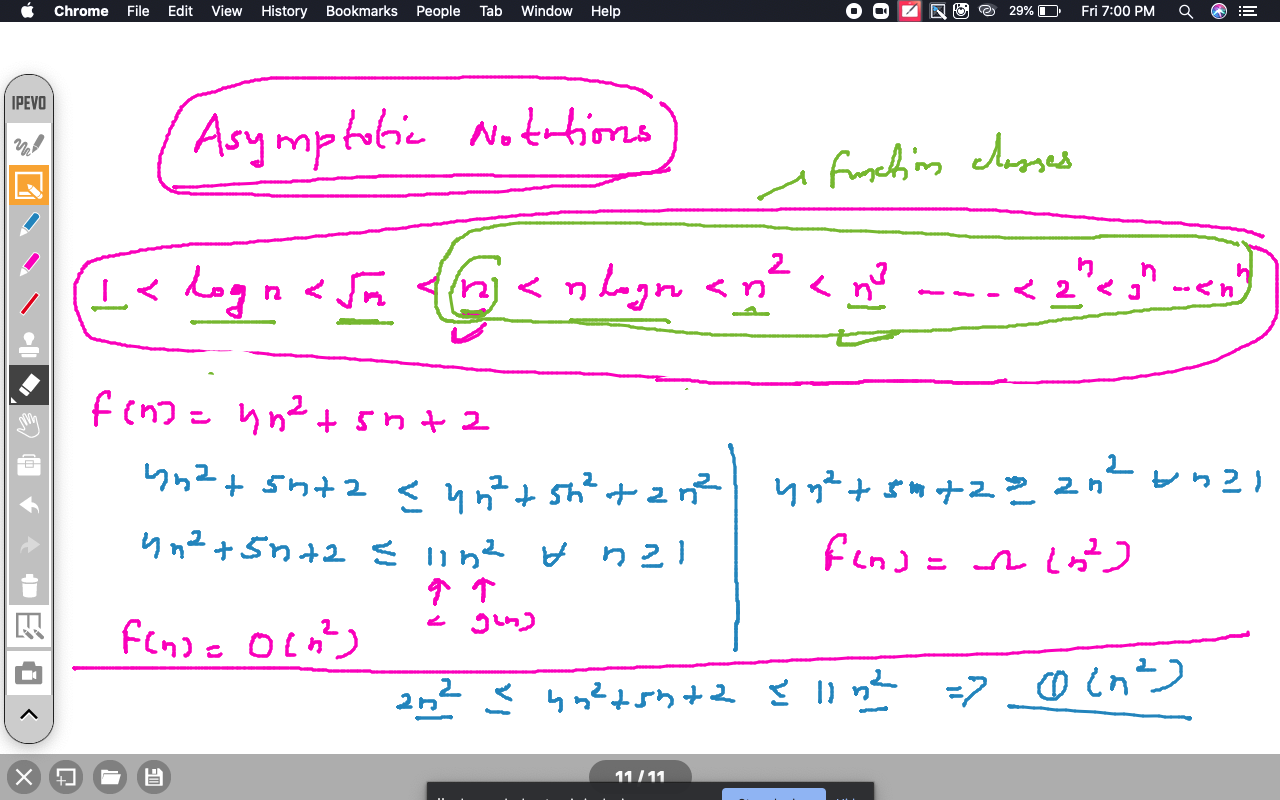 Chrome File Edit View History Bookmarks People Tab Window Help 29% Fri 7:00 PM
IPEVO
Asymptotic Notations
function classes
1 < log n < √n < n < n log n < n² < n³ ---- < 2ⁿ < 3ⁿ -- < nⁿ
f(n) = 4n² + 5n + 2
4n² + 5n + 2 ≤ 4n² + 5n² + 2n²
4n² + 5n + 2 ≤ 11 n² ∀ n ≥ 1
↑ ↑
c g(n)
f(n) = O(n²)
4n² + 5n + 2 ≥ 2n² ∀ n ≥ 1
f(n) = Ω(n²)
2n² ≤ 4n² + 5n + 2 ≤ 11 n² => Θ(n²)
11 / 11